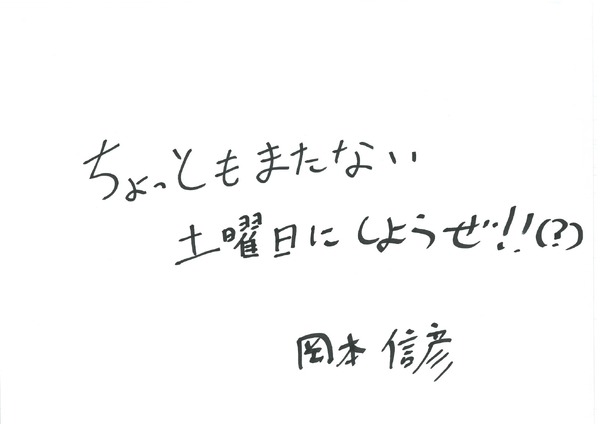 ちょっともまたない
土曜日にしようぜ!!(?)
岡本信彦